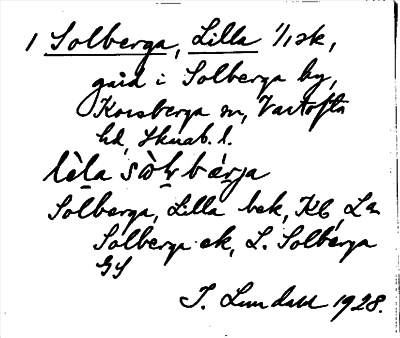 1 Solberga, Lilla 1/1 sk,
gård i Solberga by,
Korsberga sn, Vartofta
hd, Skarab. l.
lèla sòłbærja
Solberga, Lilla bek, KB, La
Solberga ek, L. Solberga
GS
I. Lundahl 1928.